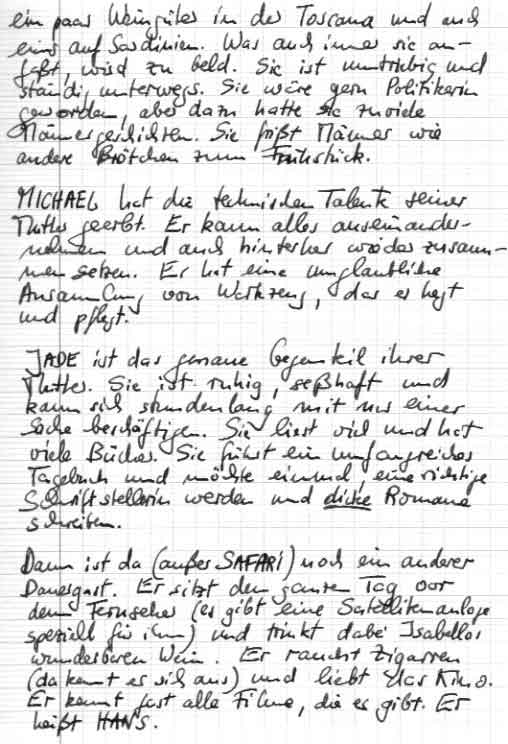 ein paar Weingüter in der Toscana und auch
eins auf Sardinien. Was auch immer sie an-
faßt, wird zu Geld. Sie ist umtriebig und
ständig unterwegs. Sie wäre gern Politikerin
geworden, aber dazu hatte sie zuviele
Männergeschichten. Sie frißt Männer wie
andere Brötchen zum Frühstück.
MICHAEL hat die technischen Talente seiner
Mutter geerbt. Er kann alles auseinander-
nehmen und auch hinterher wieder zusam-
men setzen. Er hat eine unglaubliche
Ansammlung von Werkzeug, das er hegt
und pflegt.
JADE ist das genaue Gegenteil ihrer
Mutter. Sie ist ruhig, seßhaft und
kann sich stundenlang mit nur einer
Sache beschäftigen. Sie liest viel und hat
viele Bücher. Sie führt ein umfangreiches
Tagebuch und möchte einmal eine richtige
Schriftstellerin werden und dicke Romane
schreiben.
Dann ist da (außer SAFARI) noch ein anderer
Dauergast. Er sitzt den ganzen Tag vor
dem Fernseher (es gibt eine Satellitenanlage
speziell für ihn) und trinkt dabei Isabellas
wunderbaren Wein. Er raucht Zigarren
(da kennt er sich aus) und liebt das Kino.
Er kennt fast alle Filme, die es gibt. Er
heißt HANS.